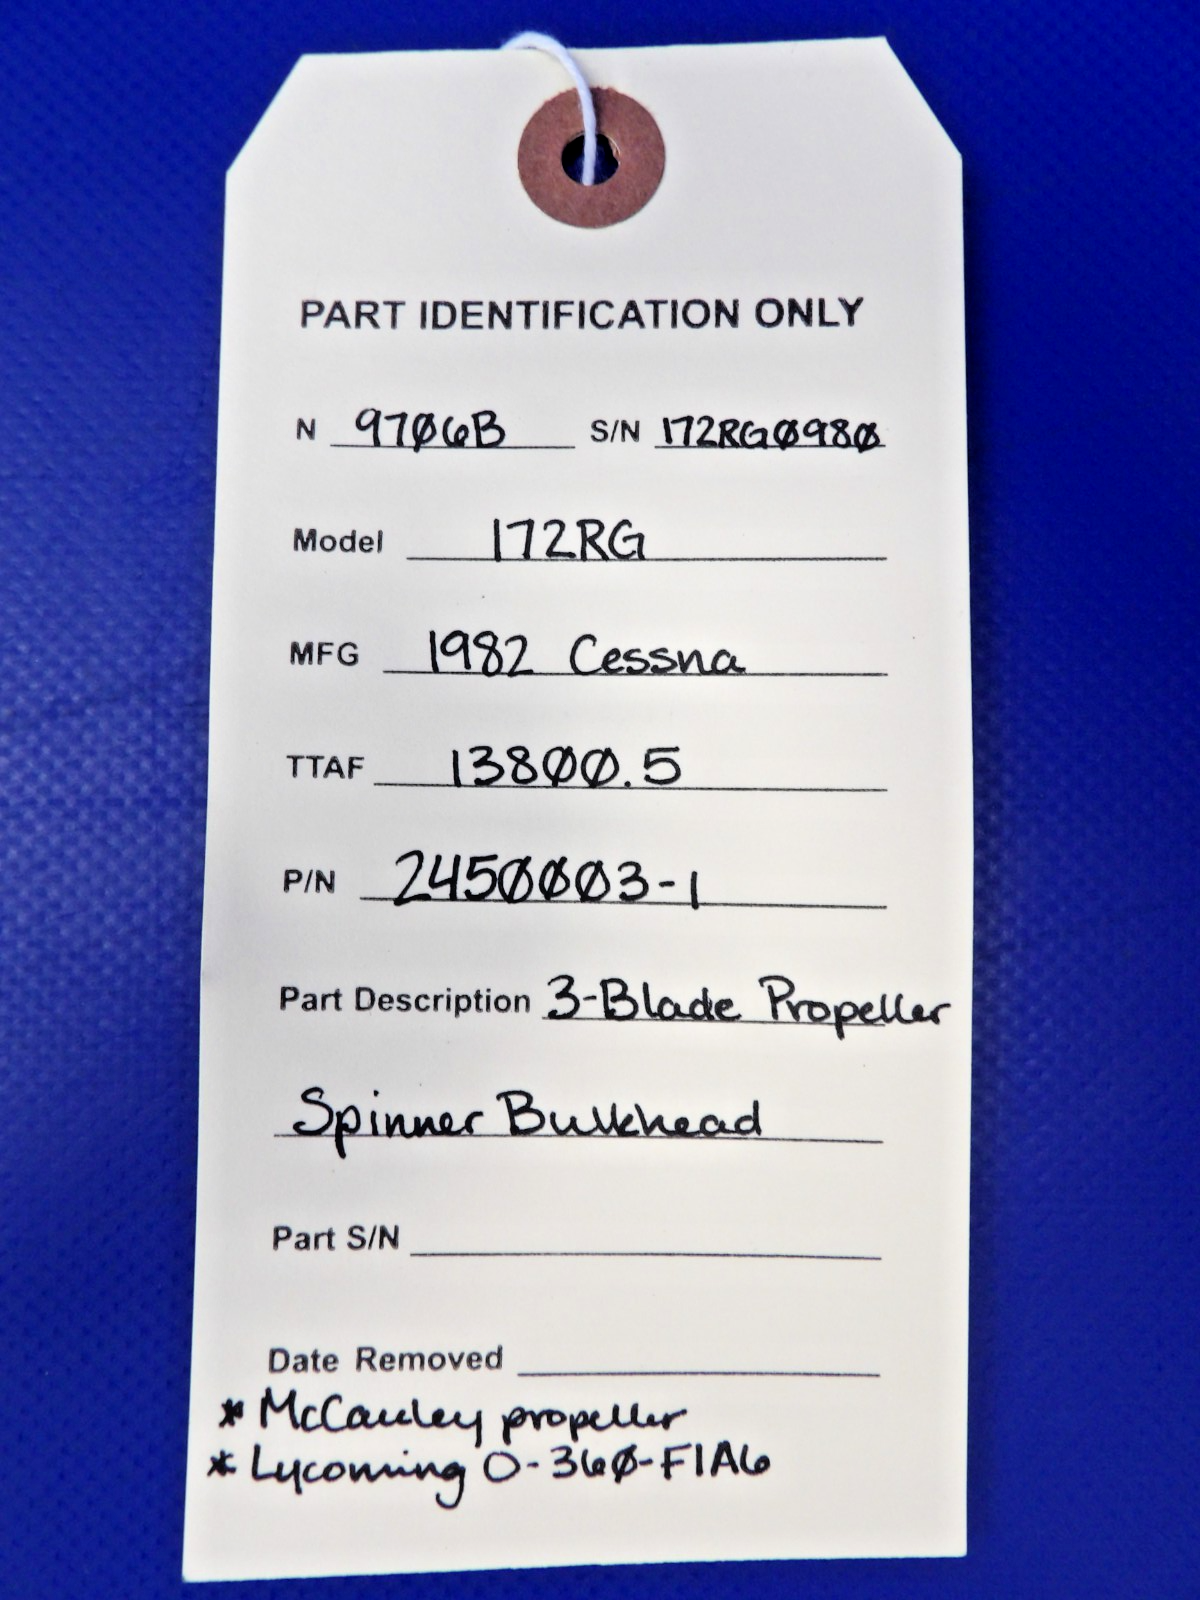 PART IDENTIFICATION ONLY
N 9706B S/N 172RG0980
Model 172RG
MFG 1982 Cessna
TTAF 13800.5
P/N 2450003-1
Part Description 3-Blade Propeller
Spinner Bulkhead
Part S/N
Date Removed
* McCauley propeller
* Lycoming O-360-F1A6